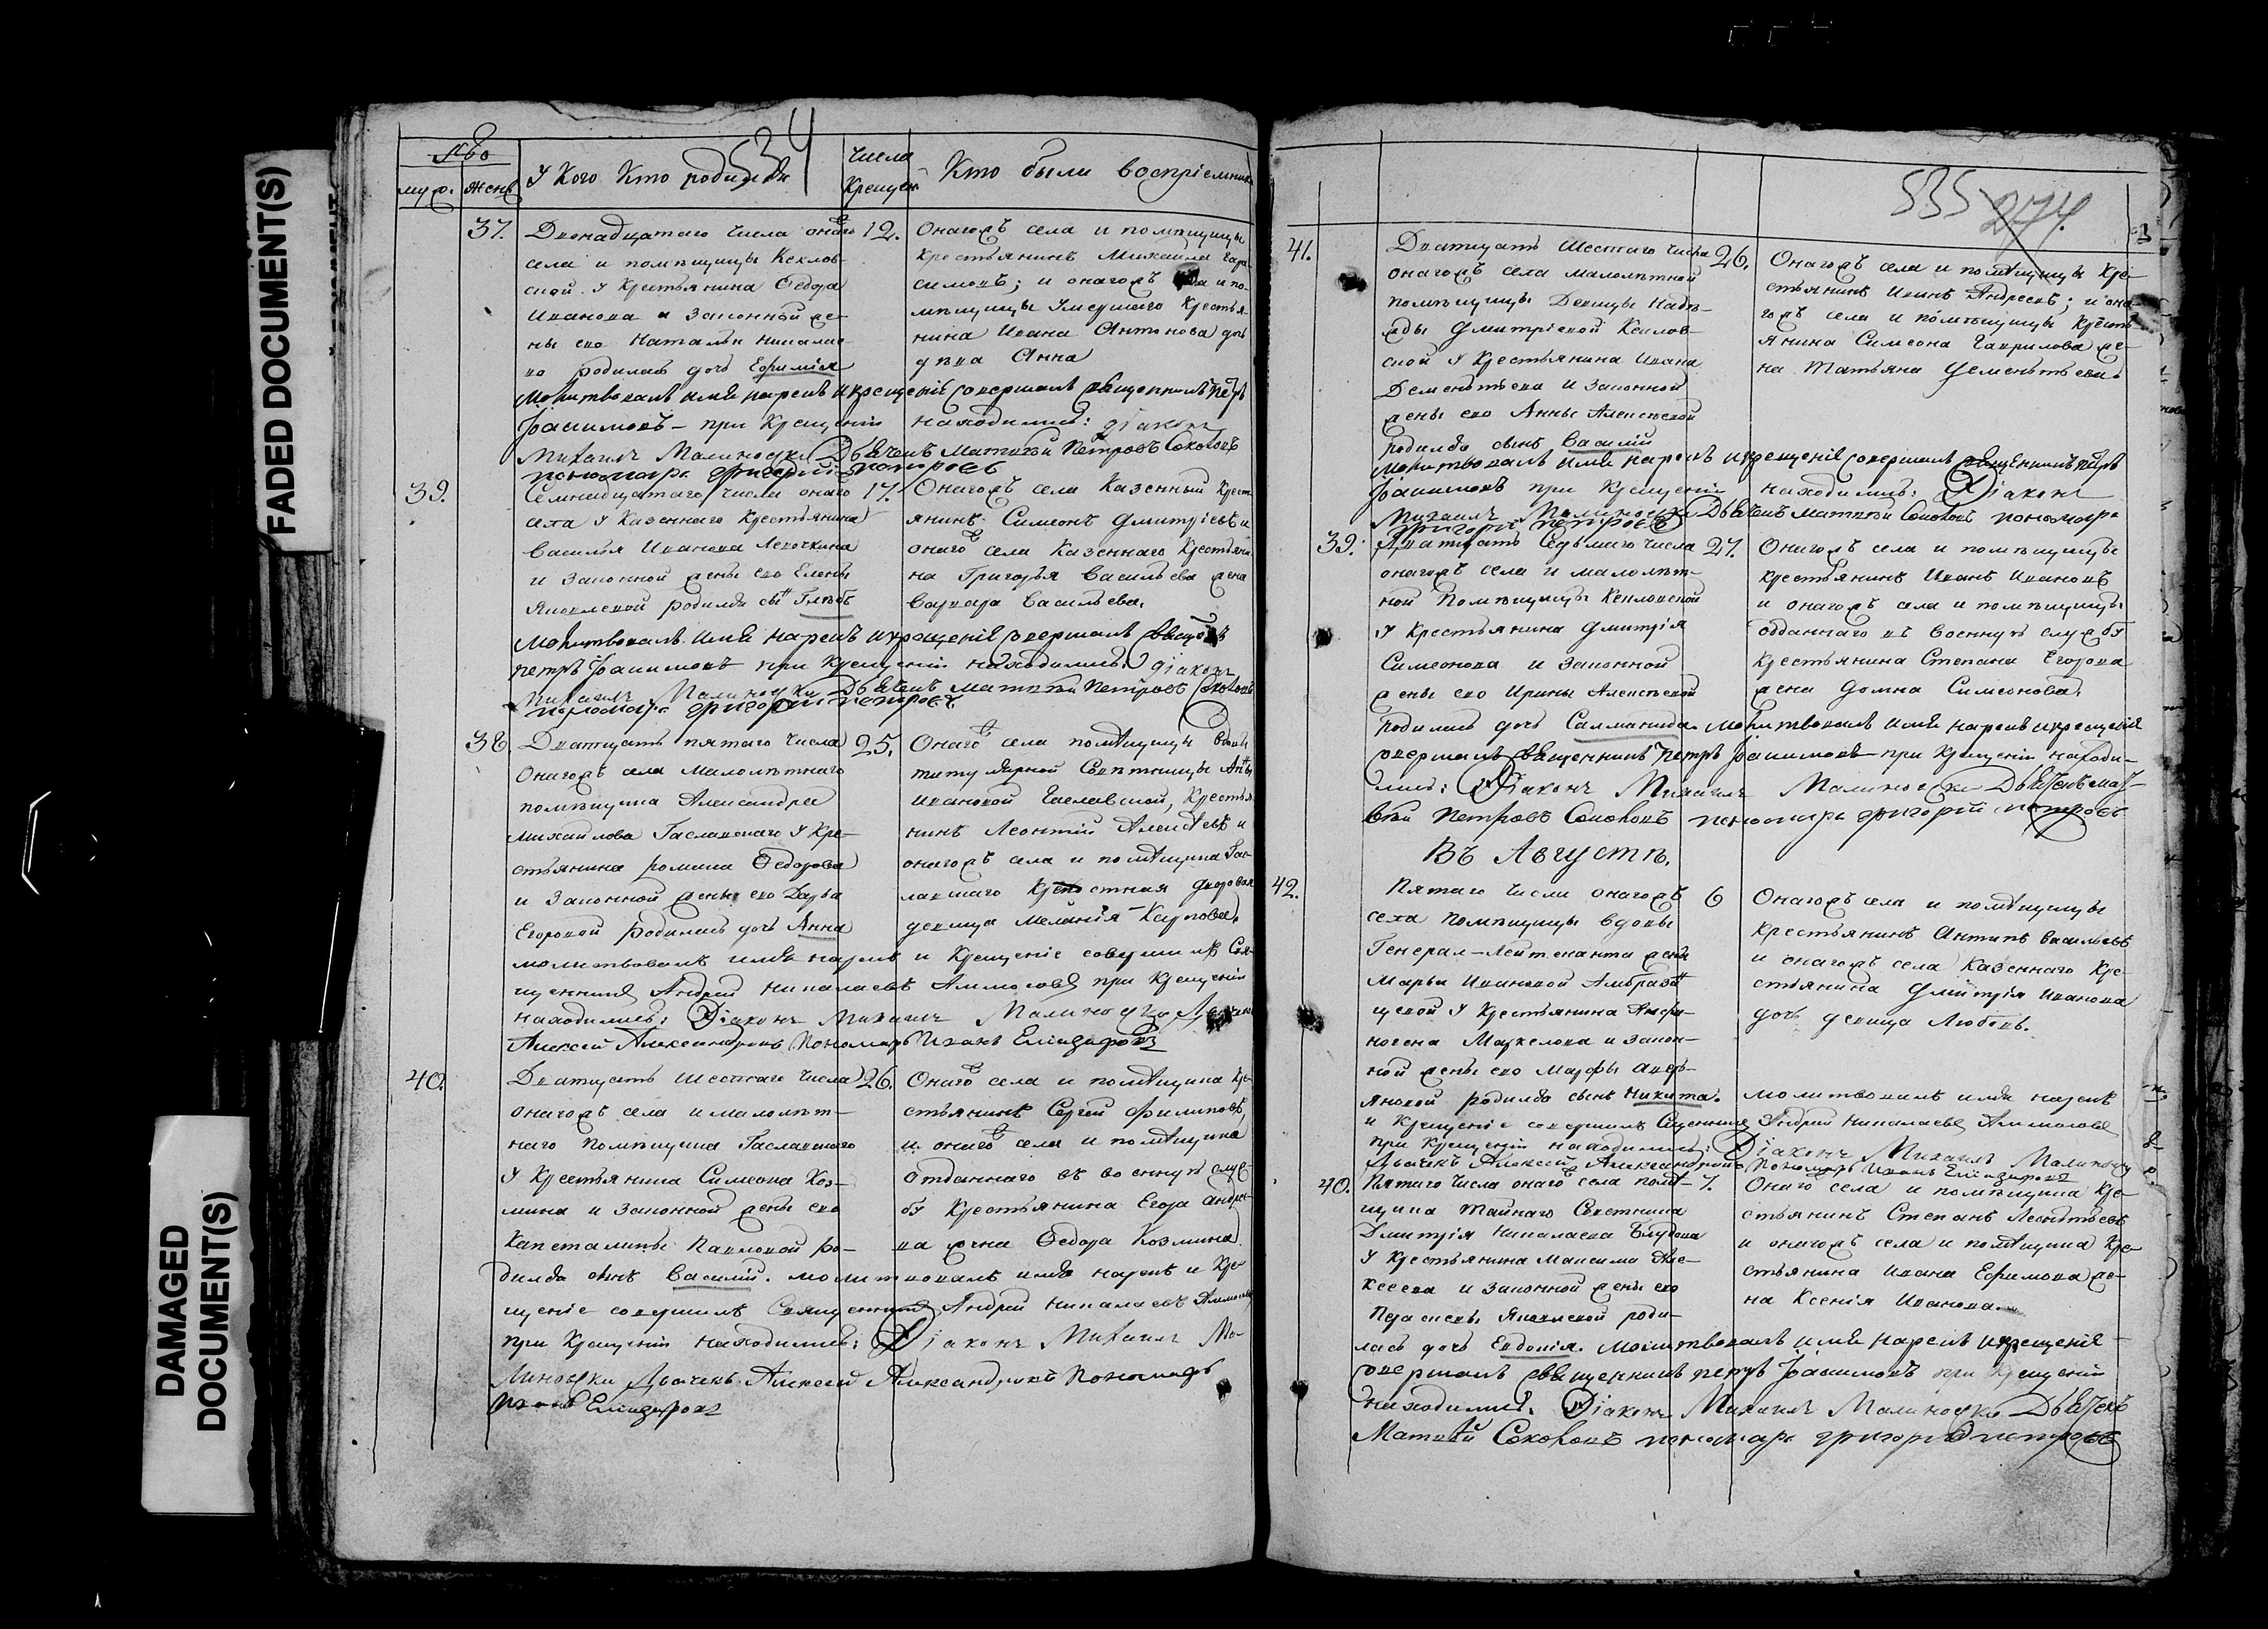 FADED DOCUMENT(S)
DAMAGED
DOCUMENT(S)
534
муж. женъ
У Кого Кто родился
Числа
Крещен
Кто были воспріемник
37.
Двенадцатаго числа онаго
села и помѣщицы Кеклов-
ской У Крестьянина Ѳедора
Иванова и законной же-
ны его Натальи Николае-
во родилась дочь Ефимія
12.
Онагожъ села и помѣщицы
Крестьянинъ Михаила Гара-
симовъ; и онагожъ села и по-
мѣщицы Умершаго Крестья-
нина Ивана Антонова дочь
дѣвка Анна
Молитвовалъ имя нарекъ и крещеніе совершалъ священникъ Петръ
при Крещеніи находились: діаконъ
Михаилъ Малиновски Дьячекъ Матвѣй Петровъ Соколовъ
пономарь григорій петровъ
39.
Семнадцатаго числа онаго
села У Казеннаго Крестьянина
Василья Иванова Левочкина
и законной жены его Елены
Яковлевой родился сынъ Глѣбъ
17.
Онагожъ села Казенный Крест
янинъ Симеонъ Дмитріевъ и
онаго села Казеннаго Крестьяни
на Григорья Васильева жена
Варвара Васильева.
Молитвовалъ имя нарекъ и крещеніе совершалъ
петръ при крещеніи находились: діаконъ
Михаилъ Малиновски Дьячекъ Матвѣй Петровъ Соколовъ
пономарь григорій петровъ
38
Дватцать пятаго числа
Онагожъ села Малолѣтнаго
помѣщика Александра
Михайлова Гаславскаго У Кре-
стьянина Романа Ѳедорова
и законной жены его Дарьи
Егоровой родилась дочь Анна
25.
Онаго села помѣщицы вдовы
титулярной Совѣтницы Анны
Ивановой Гаславской, Крестья
нинъ Леонтій Алексѣевъ и
онагожъ села и помѣщика Гас-
лавскаго Крѣпостная дворовая
девица Меланія Карпова.
молитвовалъ имя нарекъ и Крещеніе совершилъ Свя-
щенникъ Андрей Николаевъ Алмосовъ при Крещеніи
находились: Діаконъ Михаилъ Малиновски
Алексей Александровъ Пономарь Иванъ Еліазаровъ
40.
Дватцать шестаго числа
онагожъ села и малолѣт-
наго Помѣщика Гаславскаго
У Крестьянина Симеона Коз-
мина и законной жены его
Капеталины Павловой ро-
26.
Онаго села и помѣщика Кре-
стьянинъ Сергей Филиповъ,
и онаго села и помѣщика
отданнаго въ военную служ-
бу Крестьянина Егора Андре-
ва жена Ѳедора Козмина.
дился сынъ Василій. молитвовалъ имя нарекъ и Кре-
щеніе совершилъ Священникъ Андрей Николаевъ Алмосовъ
при Крещеніи находились: Діаконъ Михаилъ Ма-
линовски Дьячекъ Алексей Александровъ Пономарь
Иванъ Еліазаровъ
535
274.
41.
Дватцать Шестаго числа
онагожъ села малолѣтной
помѣщицы Девицы Надѣ-
жды Дмитріевой Кеклов-
ской У Крестьянина Ивана
Дементьева и законной
жены его Анны Алексѣевой
родился сынъ Василій
26.
Онагожъ села и помѣщицы Кре-
стьянинъ Иванъ Андреевъ; и она-
гожъ села и помѣщицы Кресть-
янина Симеона Гаврилова же-
на Татьяна Дементьева.
Молитвовалъ имя нарекъ и крещеніе совершалъ священникъ Петръ
при Крещеніи находились: Діаконъ
Михаилъ Малиновски Дьячекъ Матвѣй Соколовъ пономарь
григорій петровъ
39.
Дватцать Седьмаго числа
онагожъ села и малолѣт-
ной Помѣщицы Кекловской
У Крестьянина Дмитрія
Симеонова и законной
жены его Ирины Алексѣевой
27.
Онагожъ села и помѣщицы
крестьянинъ Иванъ Ивановъ
и онагожъ села и помѣщицы
отданнаго въ военную службу
Крестьянина Степана Егорова
жена Домна Симеонова.
родилась дочь Саломанида. молитвовалъ имя нарекъ и крещеніе
совершалъ священникъ Петръ при Крещеніи находи-
лись: Діаконъ Михаилъ Малиновски Дьячекъ Мат-
вѣй Петровъ Соколовъ пономарь григорій петровъ
Въ Августѣ.
42.
Пятаго числа онагожъ
села помѣщицы вдовы
Генерал-Лейтенанта жены
Марьи Ивановой Амбразан
цевой У Крестьянина Анфи-
ногена Маркелова и закон-
ной жены его Марфы Авфѣ-
6
Онагожъ села и помѣщицы
Крестьянинъ Антипъ Васильевъ
и онагожъ села Казеннаго Кре-
стьянина Дмитрія Иванова
дочь девица Любовь.
яновой родился сынъ Никита. молитвовалъ имя нарекъ
и Крещеніе совершилъ Священникъ Андрей Николаевъ Алмосовъ
при Крещеніи находились: Діаконъ Михаилъ Малиновски
Дьячекъ Алексей Александровъ Пономарь Иванъ Еліазаровъ
40.
Пятаго числа онаго села помѣ-
щика Тайнаго Советника
Дмитрія Николаева Блудова
У Крестьянина Максима Але-
ксеева и законной жены его
Прасковьи Яковлевой роди-
7.
Онаго села и помѣщика Кре-
стьянинъ Степанъ Леонтьевъ
и онагожъ села и помѣщика Кре-
стьянина Ивана Ефимова же-
на Ксенія Иванова.
лась дочь Евдокія. Молитвовалъ имя нарекъ и крещеніе
совершалъ священникъ петръ при Крещеніи
находились: Діаконъ Михаилъ Малиновски Дьячекъ
Матвѣй Соколовъ пономарь григорій петровъ